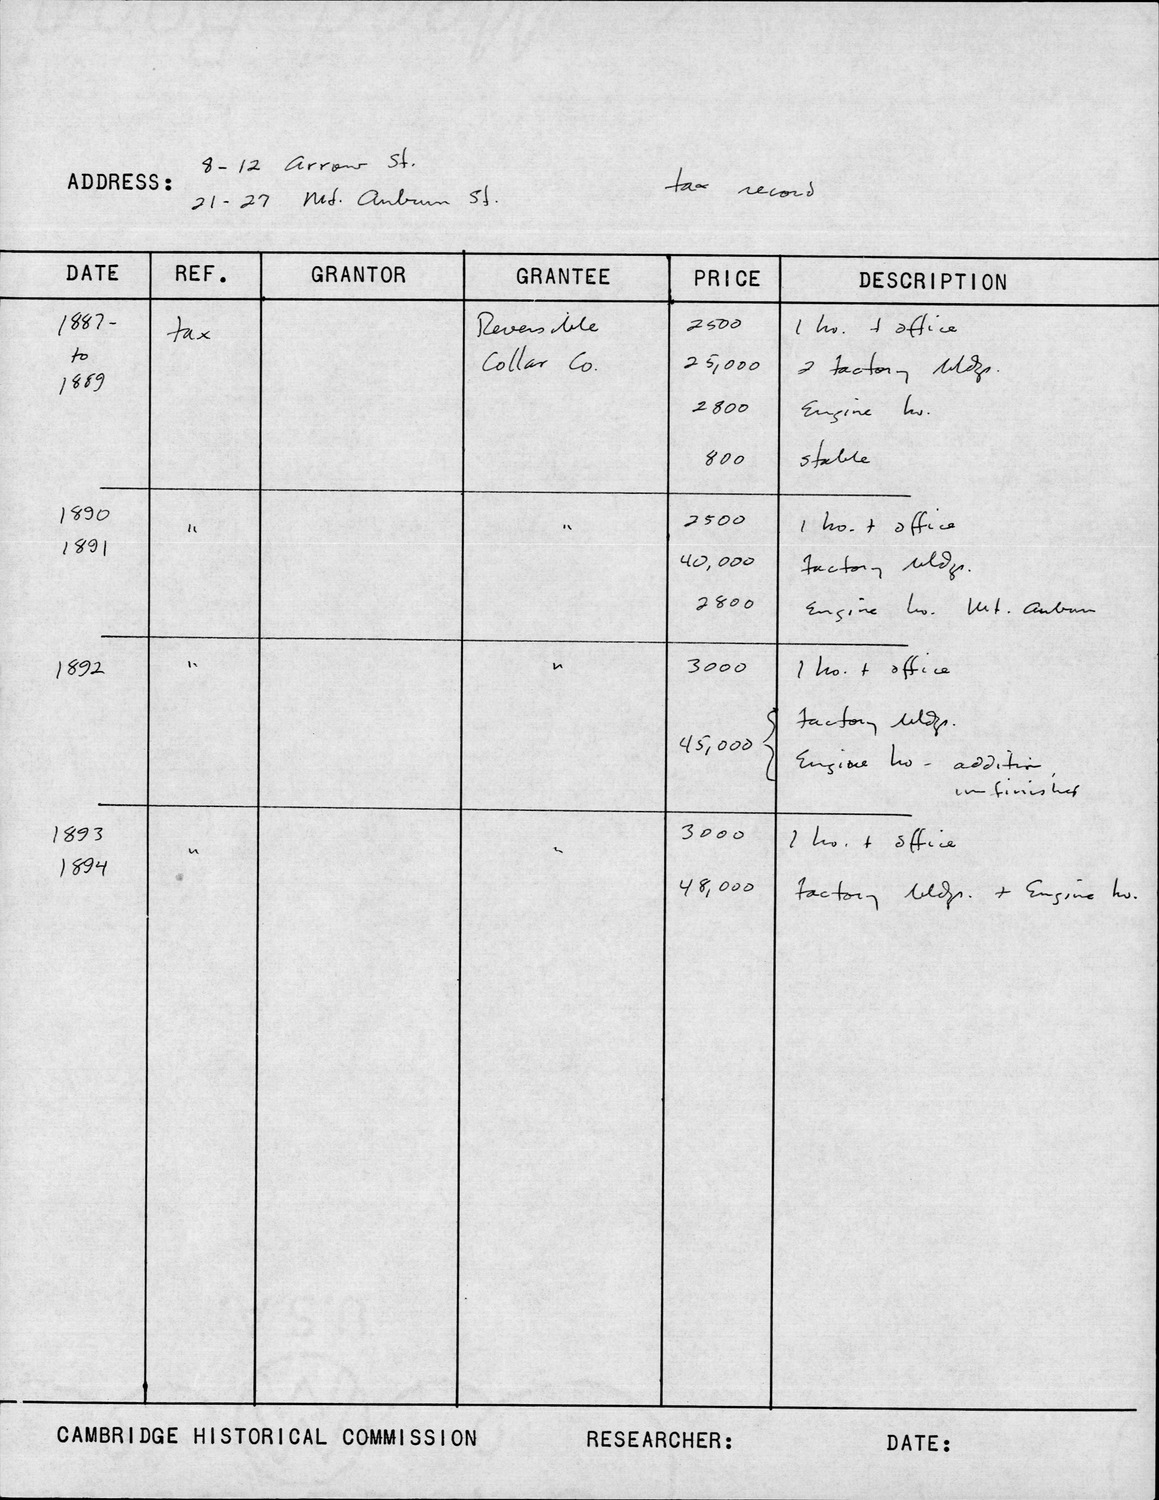 ADDRESS: 8-12 Arrow St.
21-27 Mt. Auburn St.
tax record
DATE REF. GRANTOR GRANTEE PRICE DESCRIPTION
1887- tax Reversible 2500 1 ho. + office
to Collar Co. 25,000 2 factory bldgs.
1889
2800 Engine ho.
800 stable
1890 " " 2500 1 ho. + office
1891 40,000 factory bldgs.
2800 Engine ho. Mt. Auburn
1892 " " 3000 1 ho. + office
45,000 { factory bldgs.
Engine ho - addition,
unfinished
1893 " " 3000 1 ho. + office
1894 48,000 factory bldgs. + Engine ho.
CAMBRIDGE HISTORICAL COMMISSION RESEARCHER: DATE: